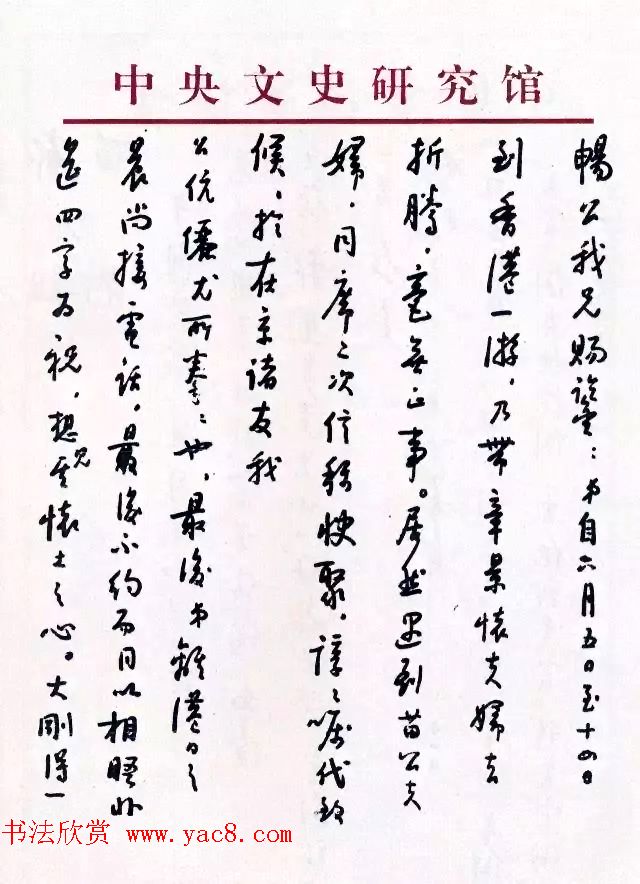 中央文史研究馆
暢公我兄賜鑒：弟自六月五日至十四日
到香港一游，乃带章景懷夫婦去
折腾，毫無正事。居然遇到苗公夫
婦，同席二次信称快聚，諄〻嘱代致
候，於在京諸友我
公伉儷尤所拳〻也，最後弟離港日之
晨尚接電話，最後不約而同以相晤非
遥四字为祝，想見其懷土之心。大刚得一
书法欣赏 www.yac8.com